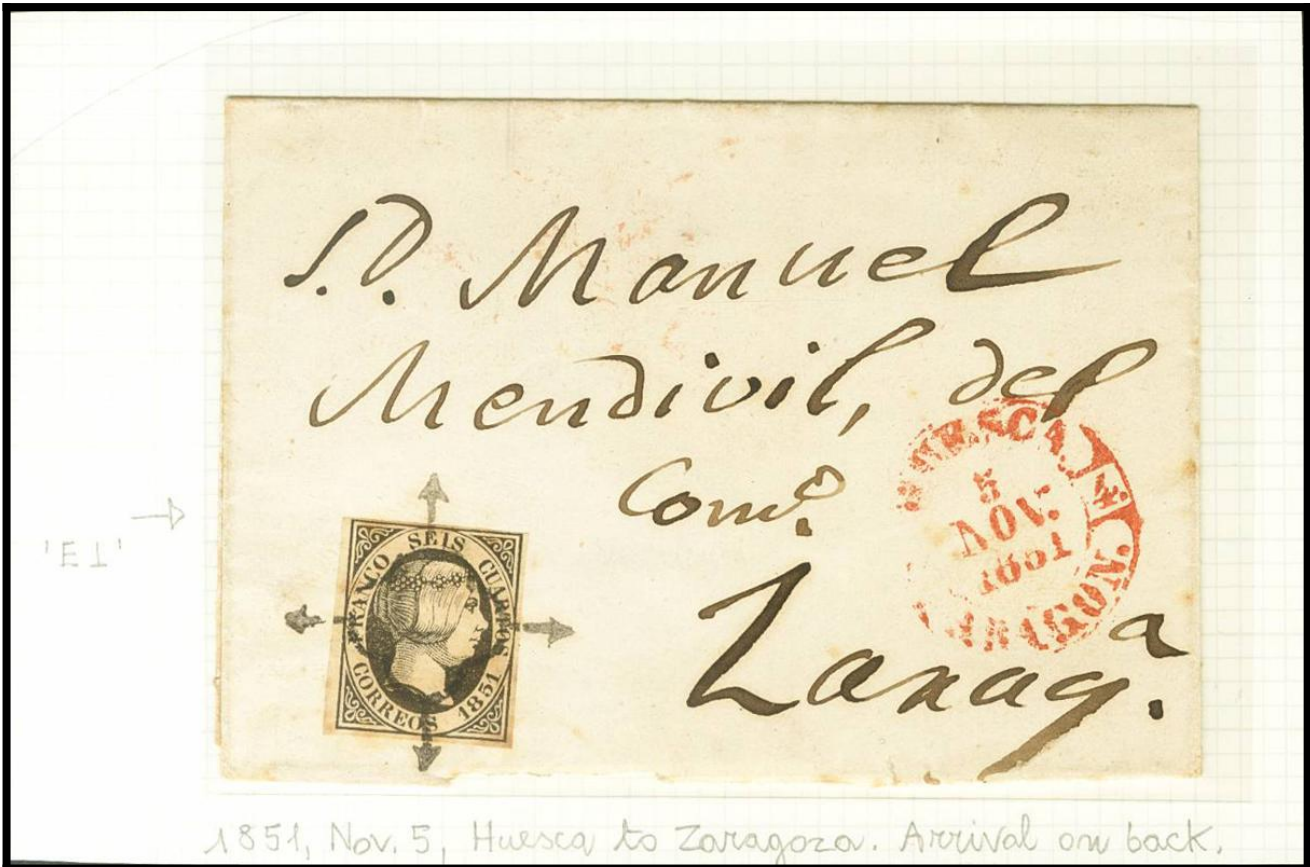 S.D. Manuel
Mendivil, del
Com.º
Zarag.ª
HUESCA
5
NOV.
1851
ARAGON.
FRANCO SEIS CUARTOS
CORREOS 1851
'E1'
1851, Nov. 5, Huesca to Zaragoza. Arrival on back.